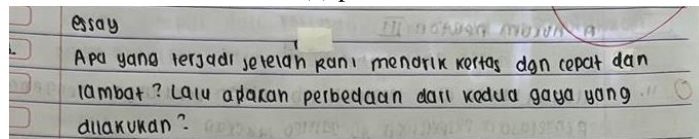 essay
Apa yang terjadi setelah Rani menarik kertas dgn cepat dan
lambat? Lalu adakah perbedaan dari kedua gaya yang
dilakukan?